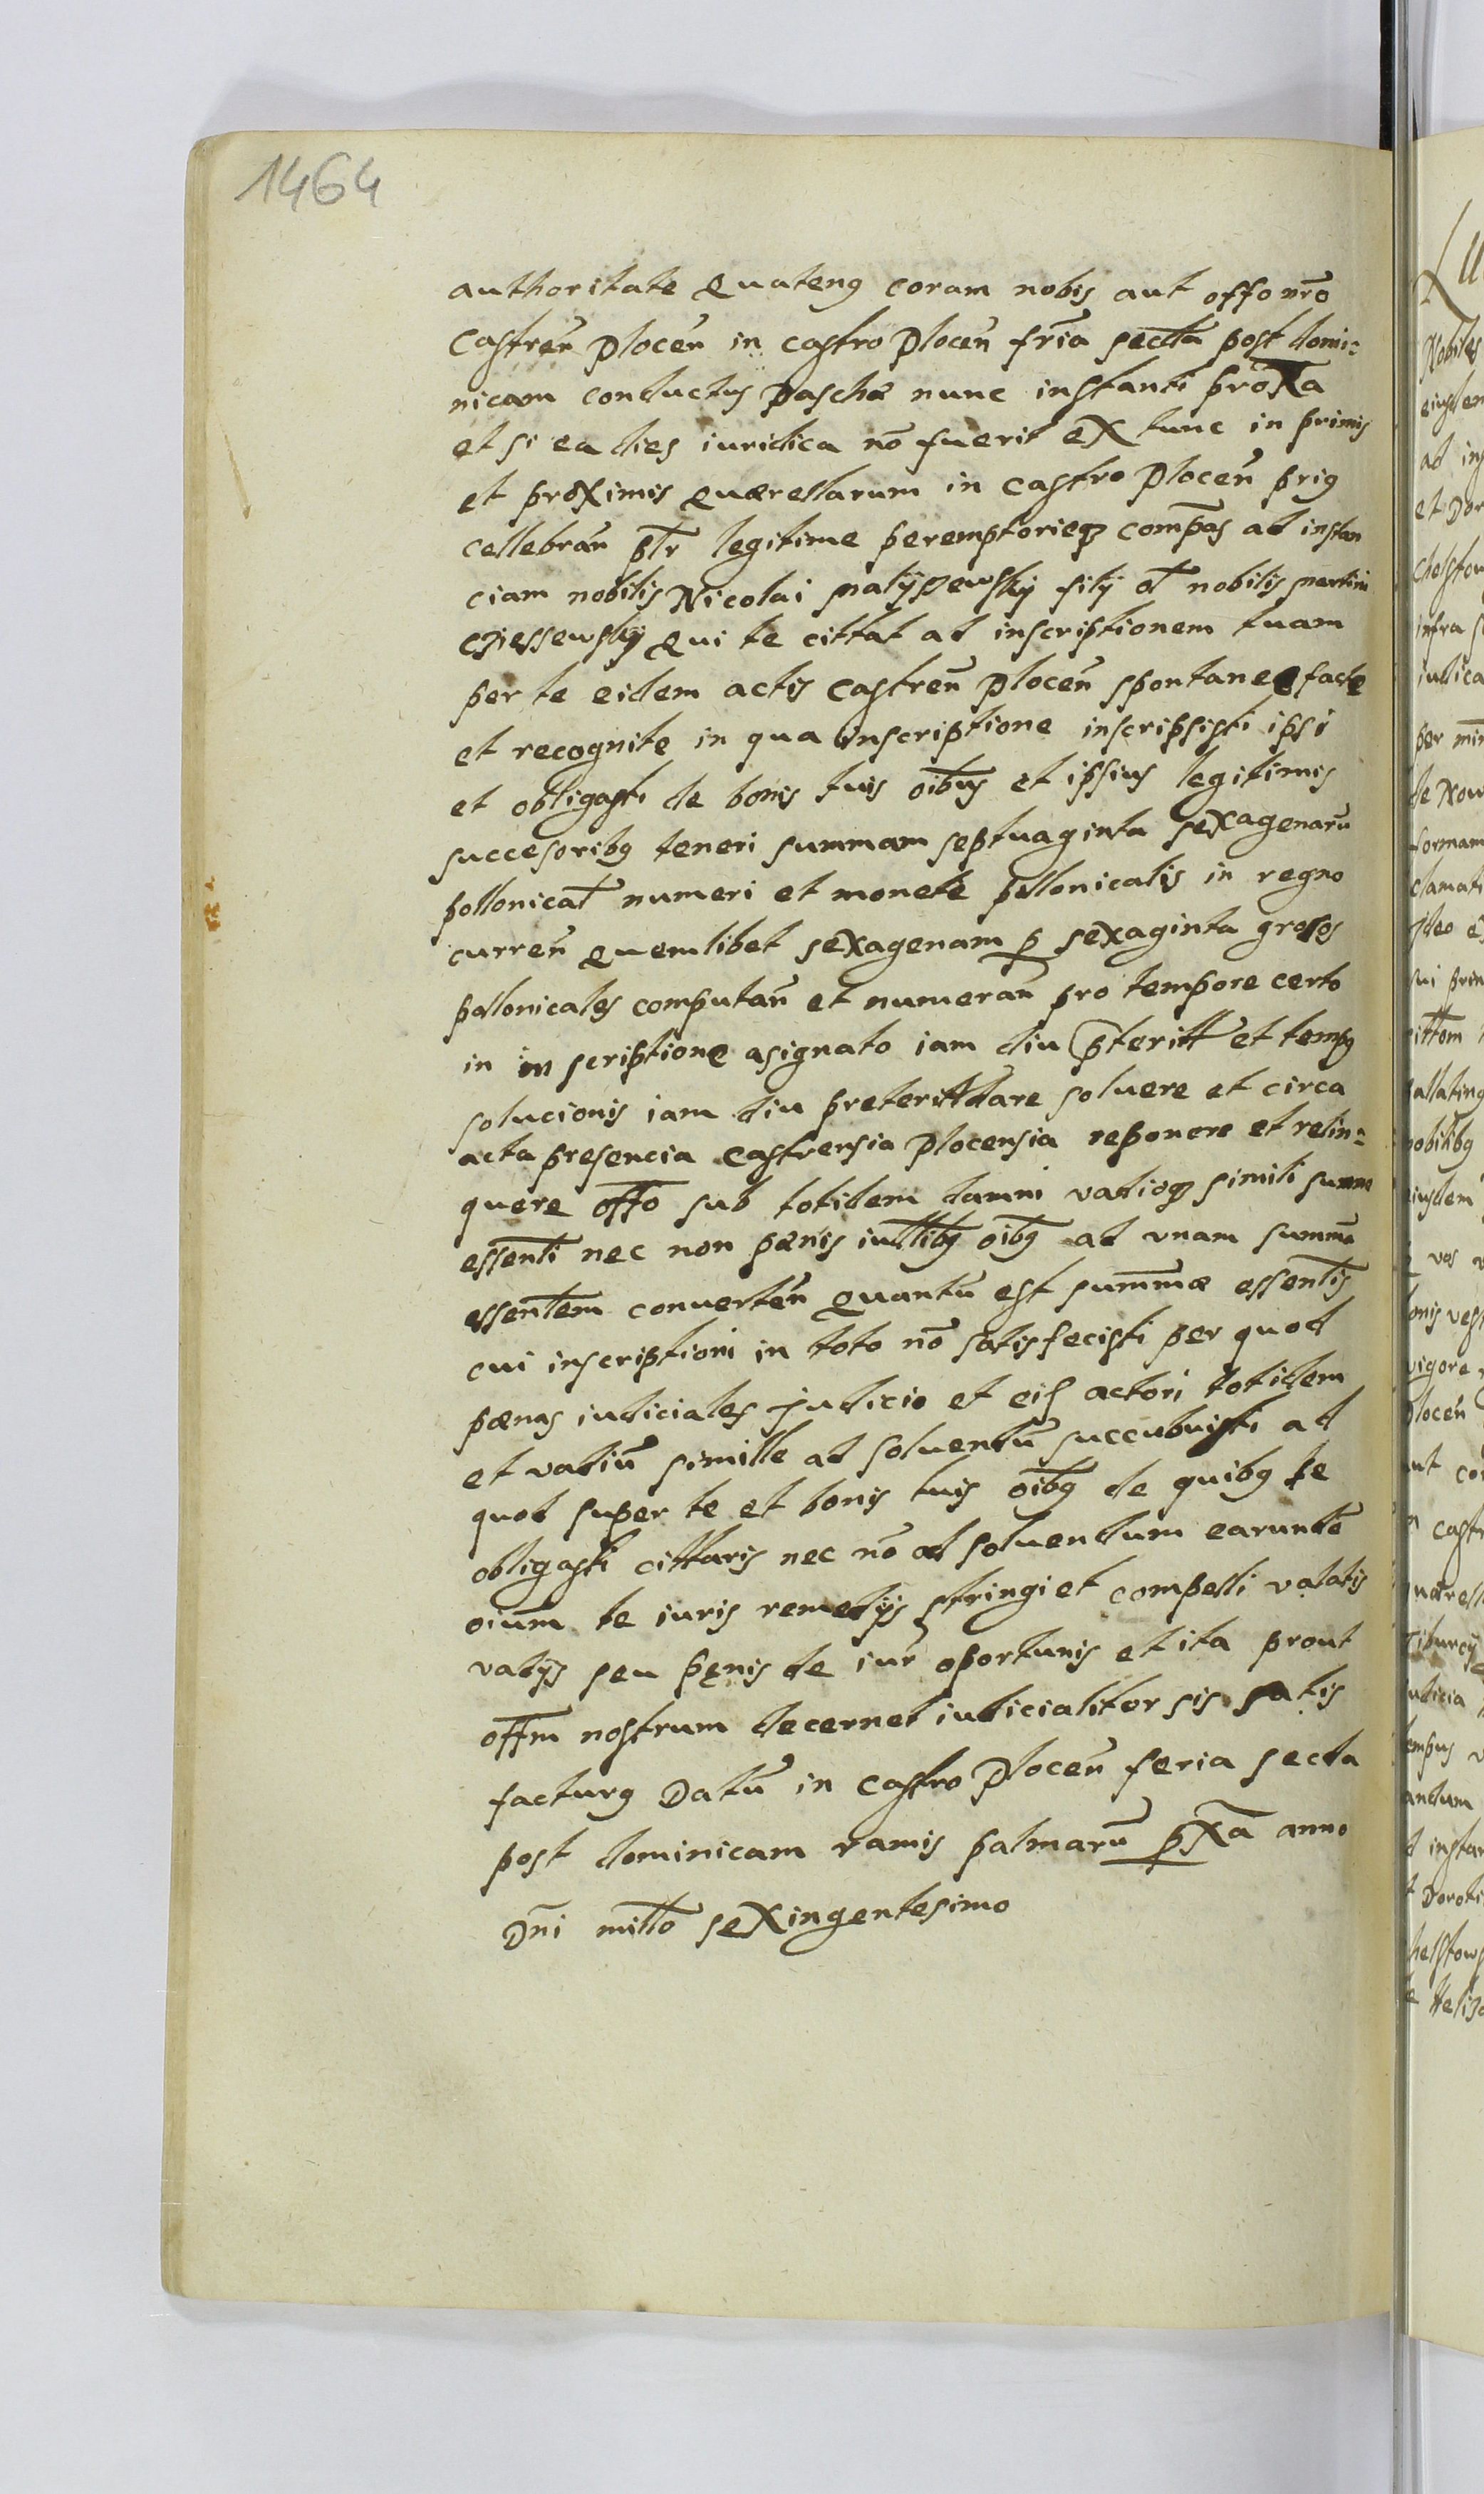 1464
authoritate Quateng coram nobis aut offo nr̄o
Castren̄ Plocen̄ in castro Plocen̄ fr̄ia sectta post domi:
nicam conductus Paschæ nunc instanti prox̄a
et si ea dies iuridica nō fuerit ex tunc in primis
et proximis Quærellarum in castro Plocen̄ prig
cellebrān pt̄r legitime peremptorieqꝫ comp̄as ad instan
ciam nobilis Nicolai Matÿszewskÿ filÿ ol̄ nobilis Martini
Cziessewskÿ Qui te cittat ad inscriptionem tuam
per te eidem actis Castren̄ Plocen̄ spontanee facte
et recognite in qua inscriptione inscripsisti ipsi
et obligasti de bonis tuis oībus et ipsius legitimis
succesoribg teneri summam septuaginta sexagenarū
pollonical̄ numeri et monete pollonicalis in regno
curren̄ Quemlibet sexagenam p̱ sexaginta grosos
pollonicales computan̄ et numeran̄ pro tempore certo
in inscriptione asignato iam diu p̄teritt et tempg
solucionis iam diu preteritt dare soluere et circa
acta presencia castrensia Plocensia reponere et relin:
quere off̄o sub totidem damni vadioqꝫ simili summa
essenti̅ nec non pænis iudl̄ibg oībg ad vnam summā
essentem̄ converten̄ Quantū est summæ essentīs
cui inscriptioni in toto nō satisfecisti per quod
pænas iudiciales judicio et eid actori totidem
et vadiū simille ad soluendū succubuisti ad
quod super te et bonis tuis oībg de quibg te
obligasti cittaris nec nō ad soluendum earundē
oiūm te iuris remedÿs stringi et compelli valatis
vadÿs seu pęnis de iur̄ oportunis et ita prout
offm̄ nostrum decernet iudicialiter sis satis
facturg Datū in castro Plocen̄ feria secta
post dominicam ramis palmarū p̱x̄a anno
Dn̄i mill̄o sexingentesimo